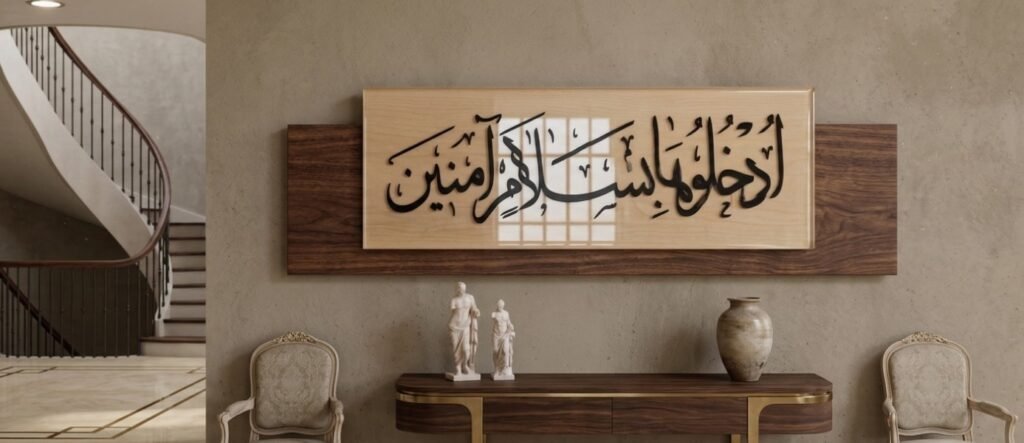 ٱدْخُلُوهَا بِسَلَامٍ آمِنِين